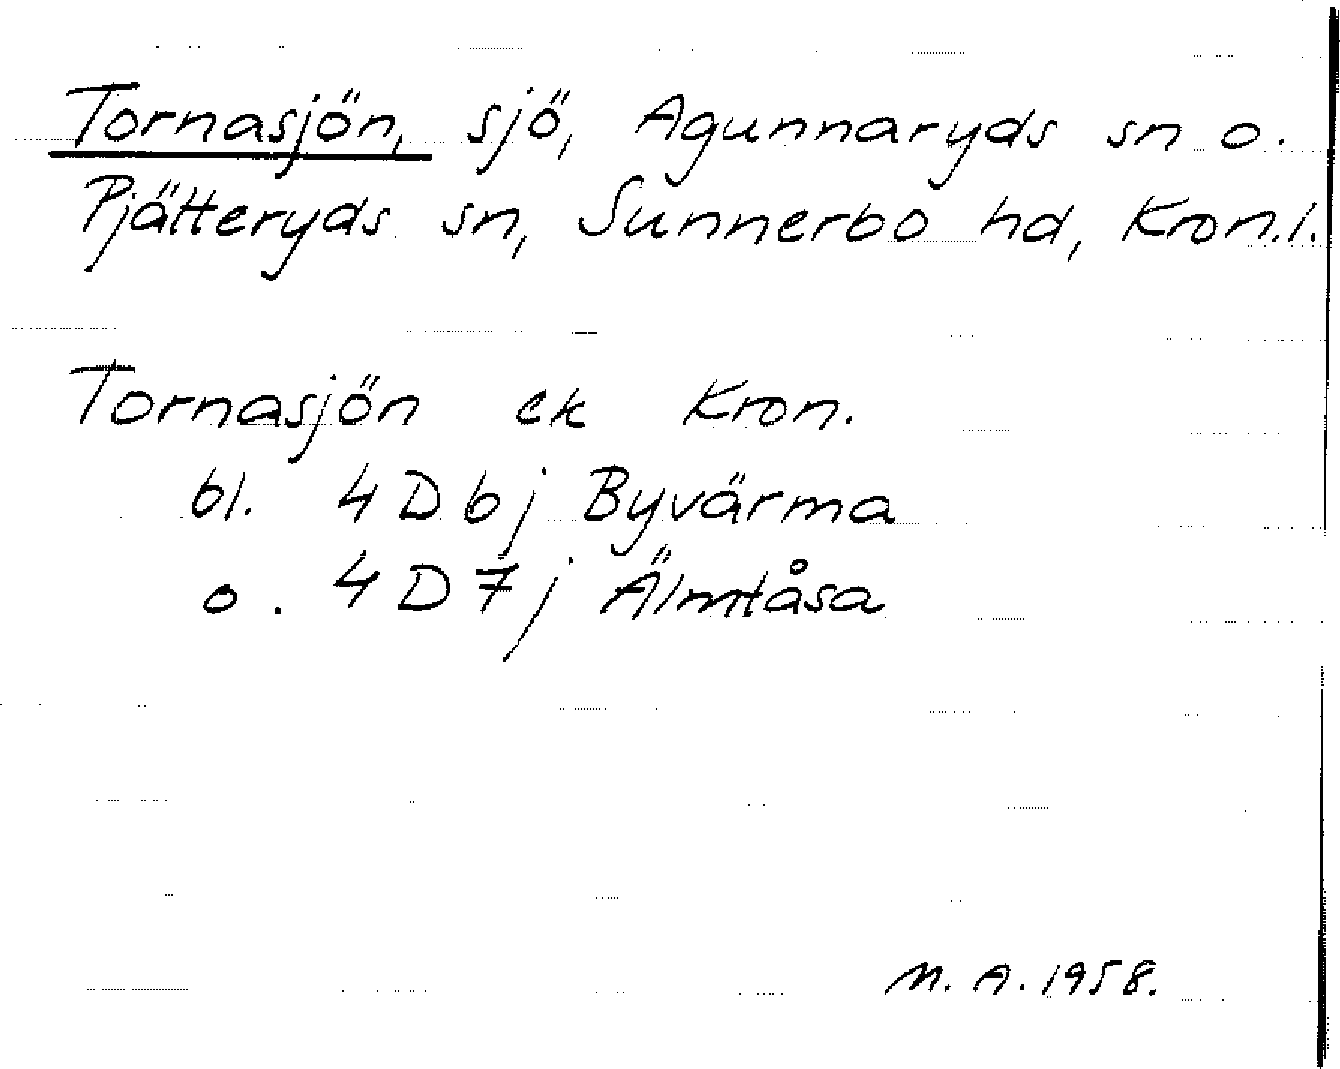 Tornasjön, sjö, Agunnaryds sn o.
Pjätteryds sn, Sunnerbo hd, Kron.l.
Tornasjön ek Kron.
bl. 4 D 6 j Byvärma
o. 4 D 7 j Älmtåsa
M. A. 1958.